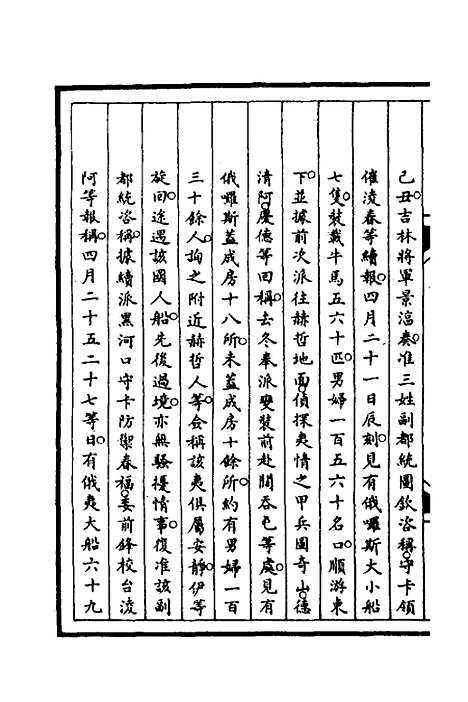 己丑。吉林將軍景淳奏。准三姓副都統圖欽咨稱。守卡領
催淩春等續報。四月二十一日辰刻。見有俄囉斯大小船
七隻。裝載牛馬五六十匹。男婦一百五六十名口。順游東
下。並據前次派往赫哲地面。偵探夷情之甲兵圖奇山。德
清阿。慶德等回稱。去冬奉派雙裝前赴闊吞屯等處。見有
俄囉斯蓋成房十八所。未蓋成房十餘所。約有男婦一百
三十餘人。詢之附近赫哲人等。僉稱該夷俱屬安靜。伊等
旋回途遇該國人船。先後過境。亦無騷擾情事。復准該副
都統咨稱。據續派黑河口守卡防禦春福。委前鋒校台淩
阿等報稱。四月二十五二十七等日。有俄夷大船六十九